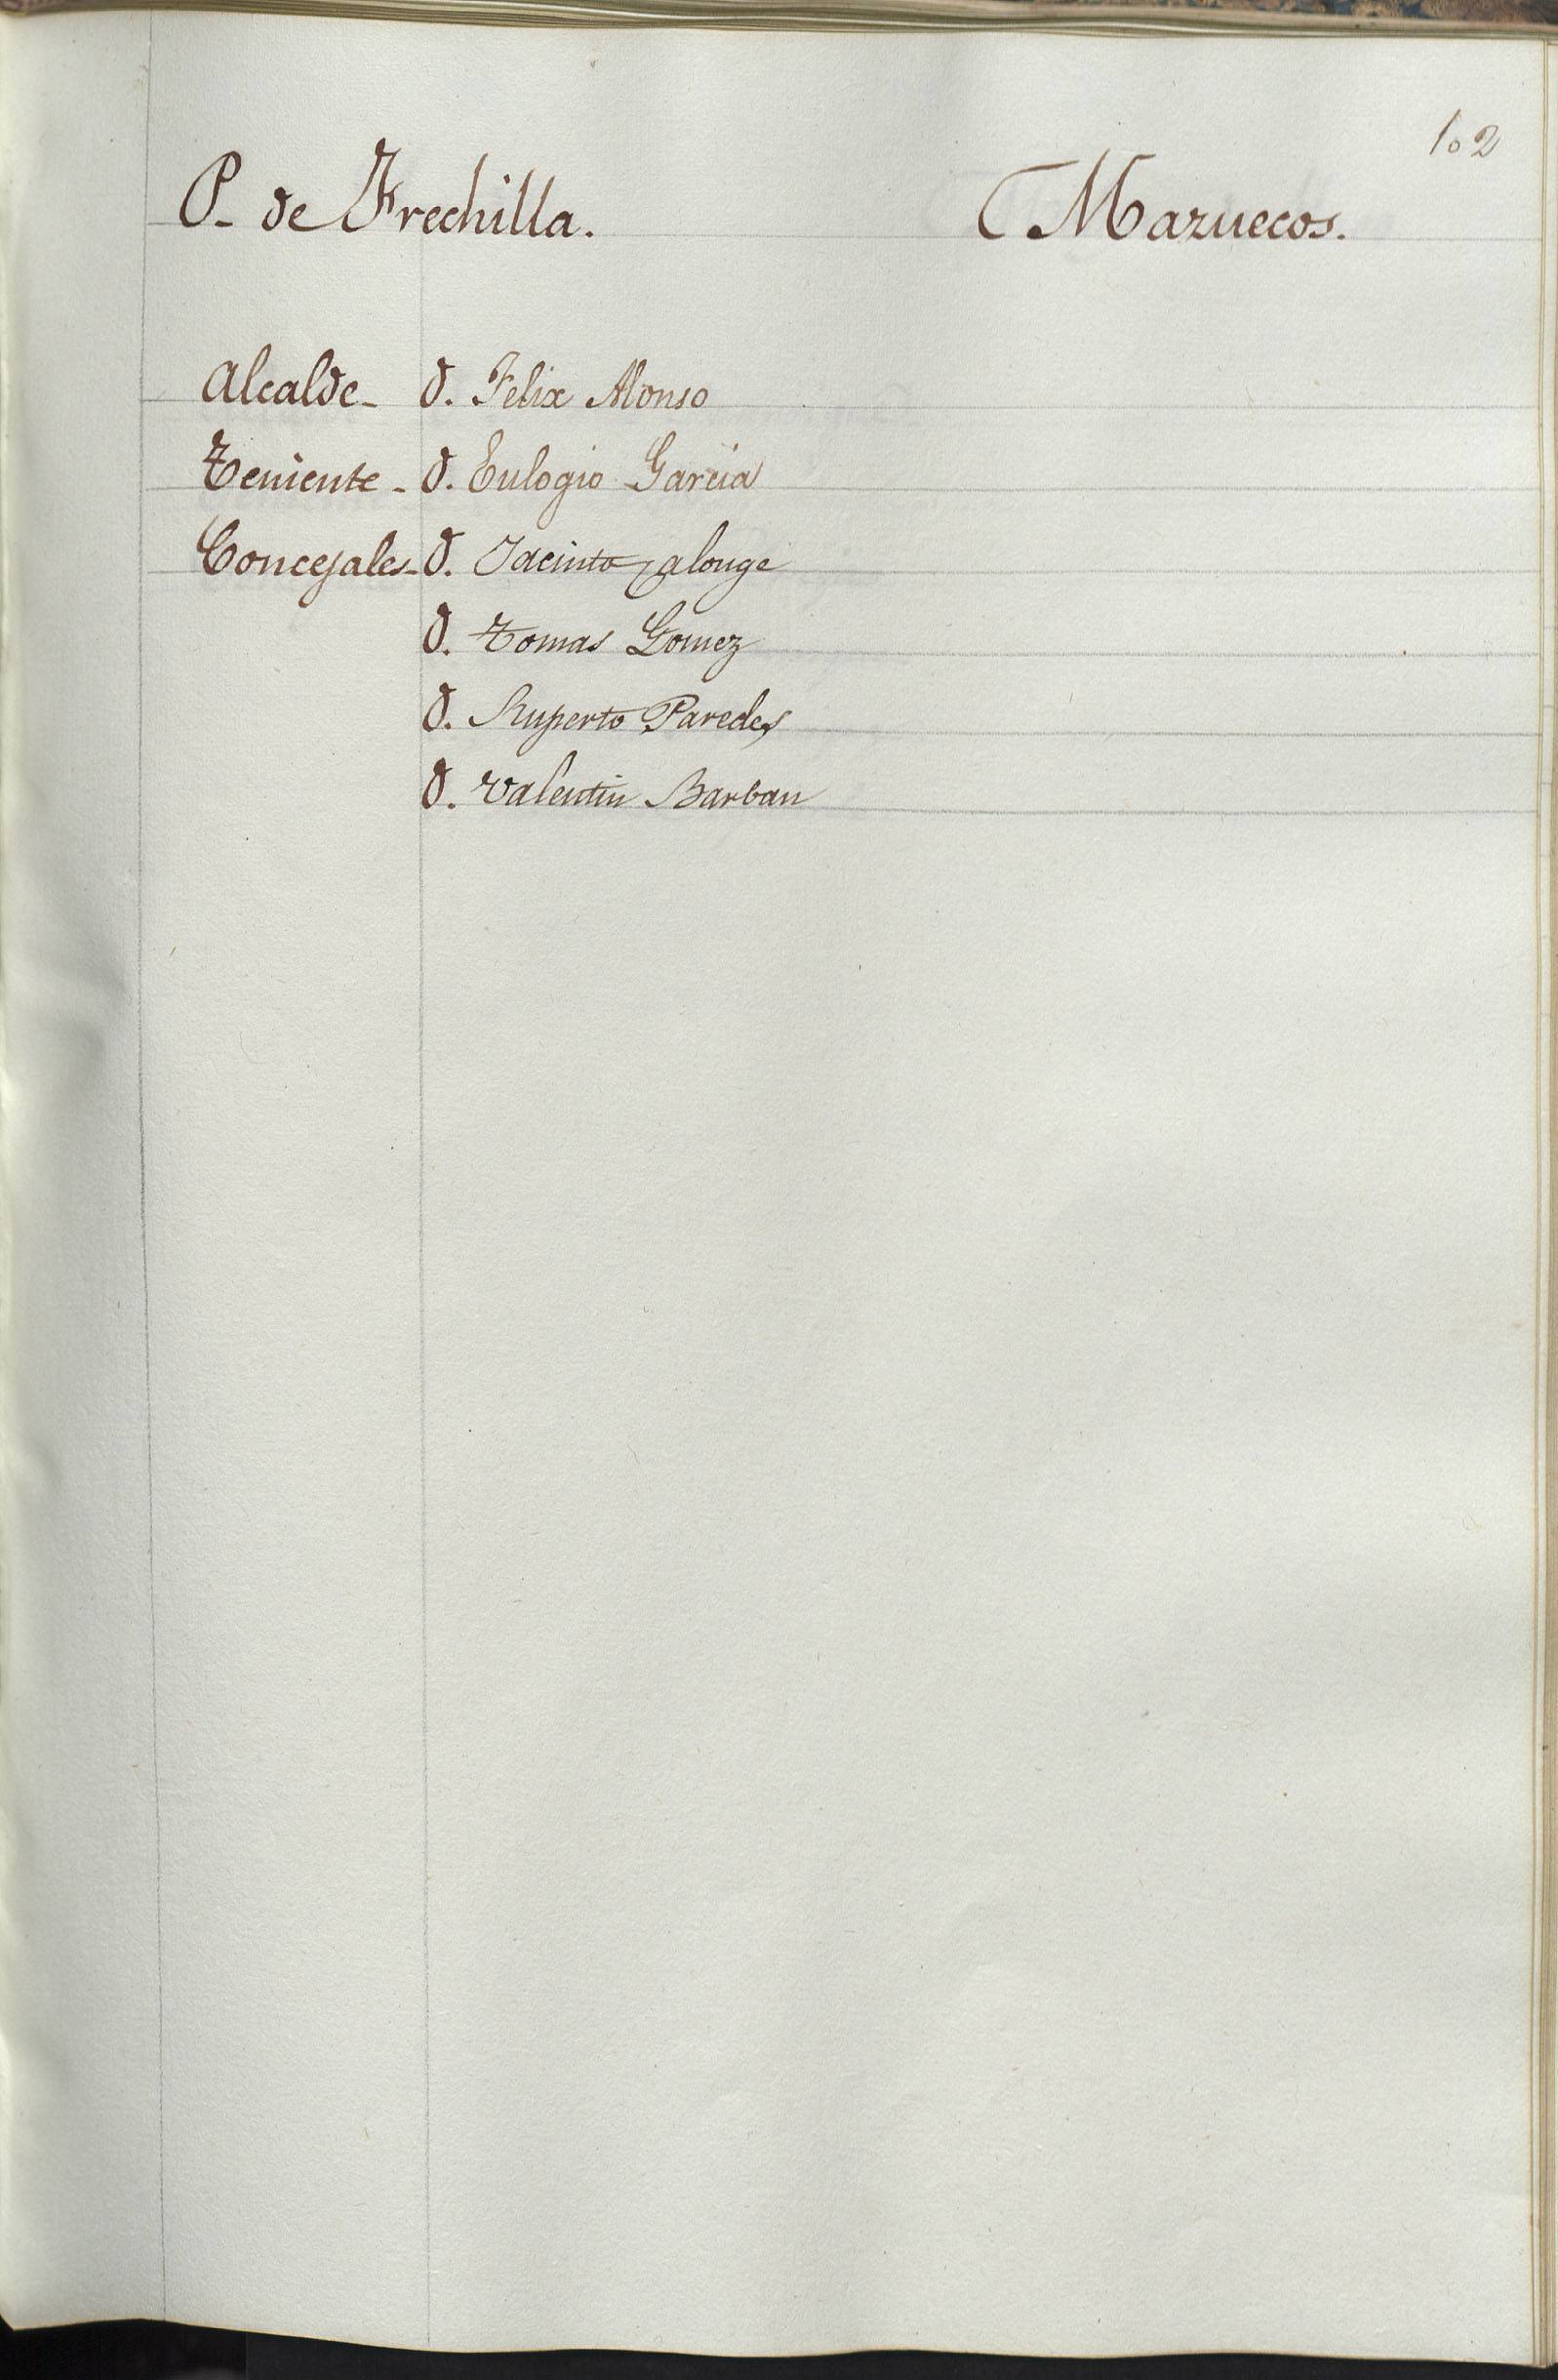 102
P. de Frechilla. Mazuecos.
Alcalde - D. Felix Alonso
Teniente - D. Eulogio Garcia
Concejales - D. Jacinto Calonge
D. Tomas Gomez
D. Ruperto Paredes
D. Valentin Barban